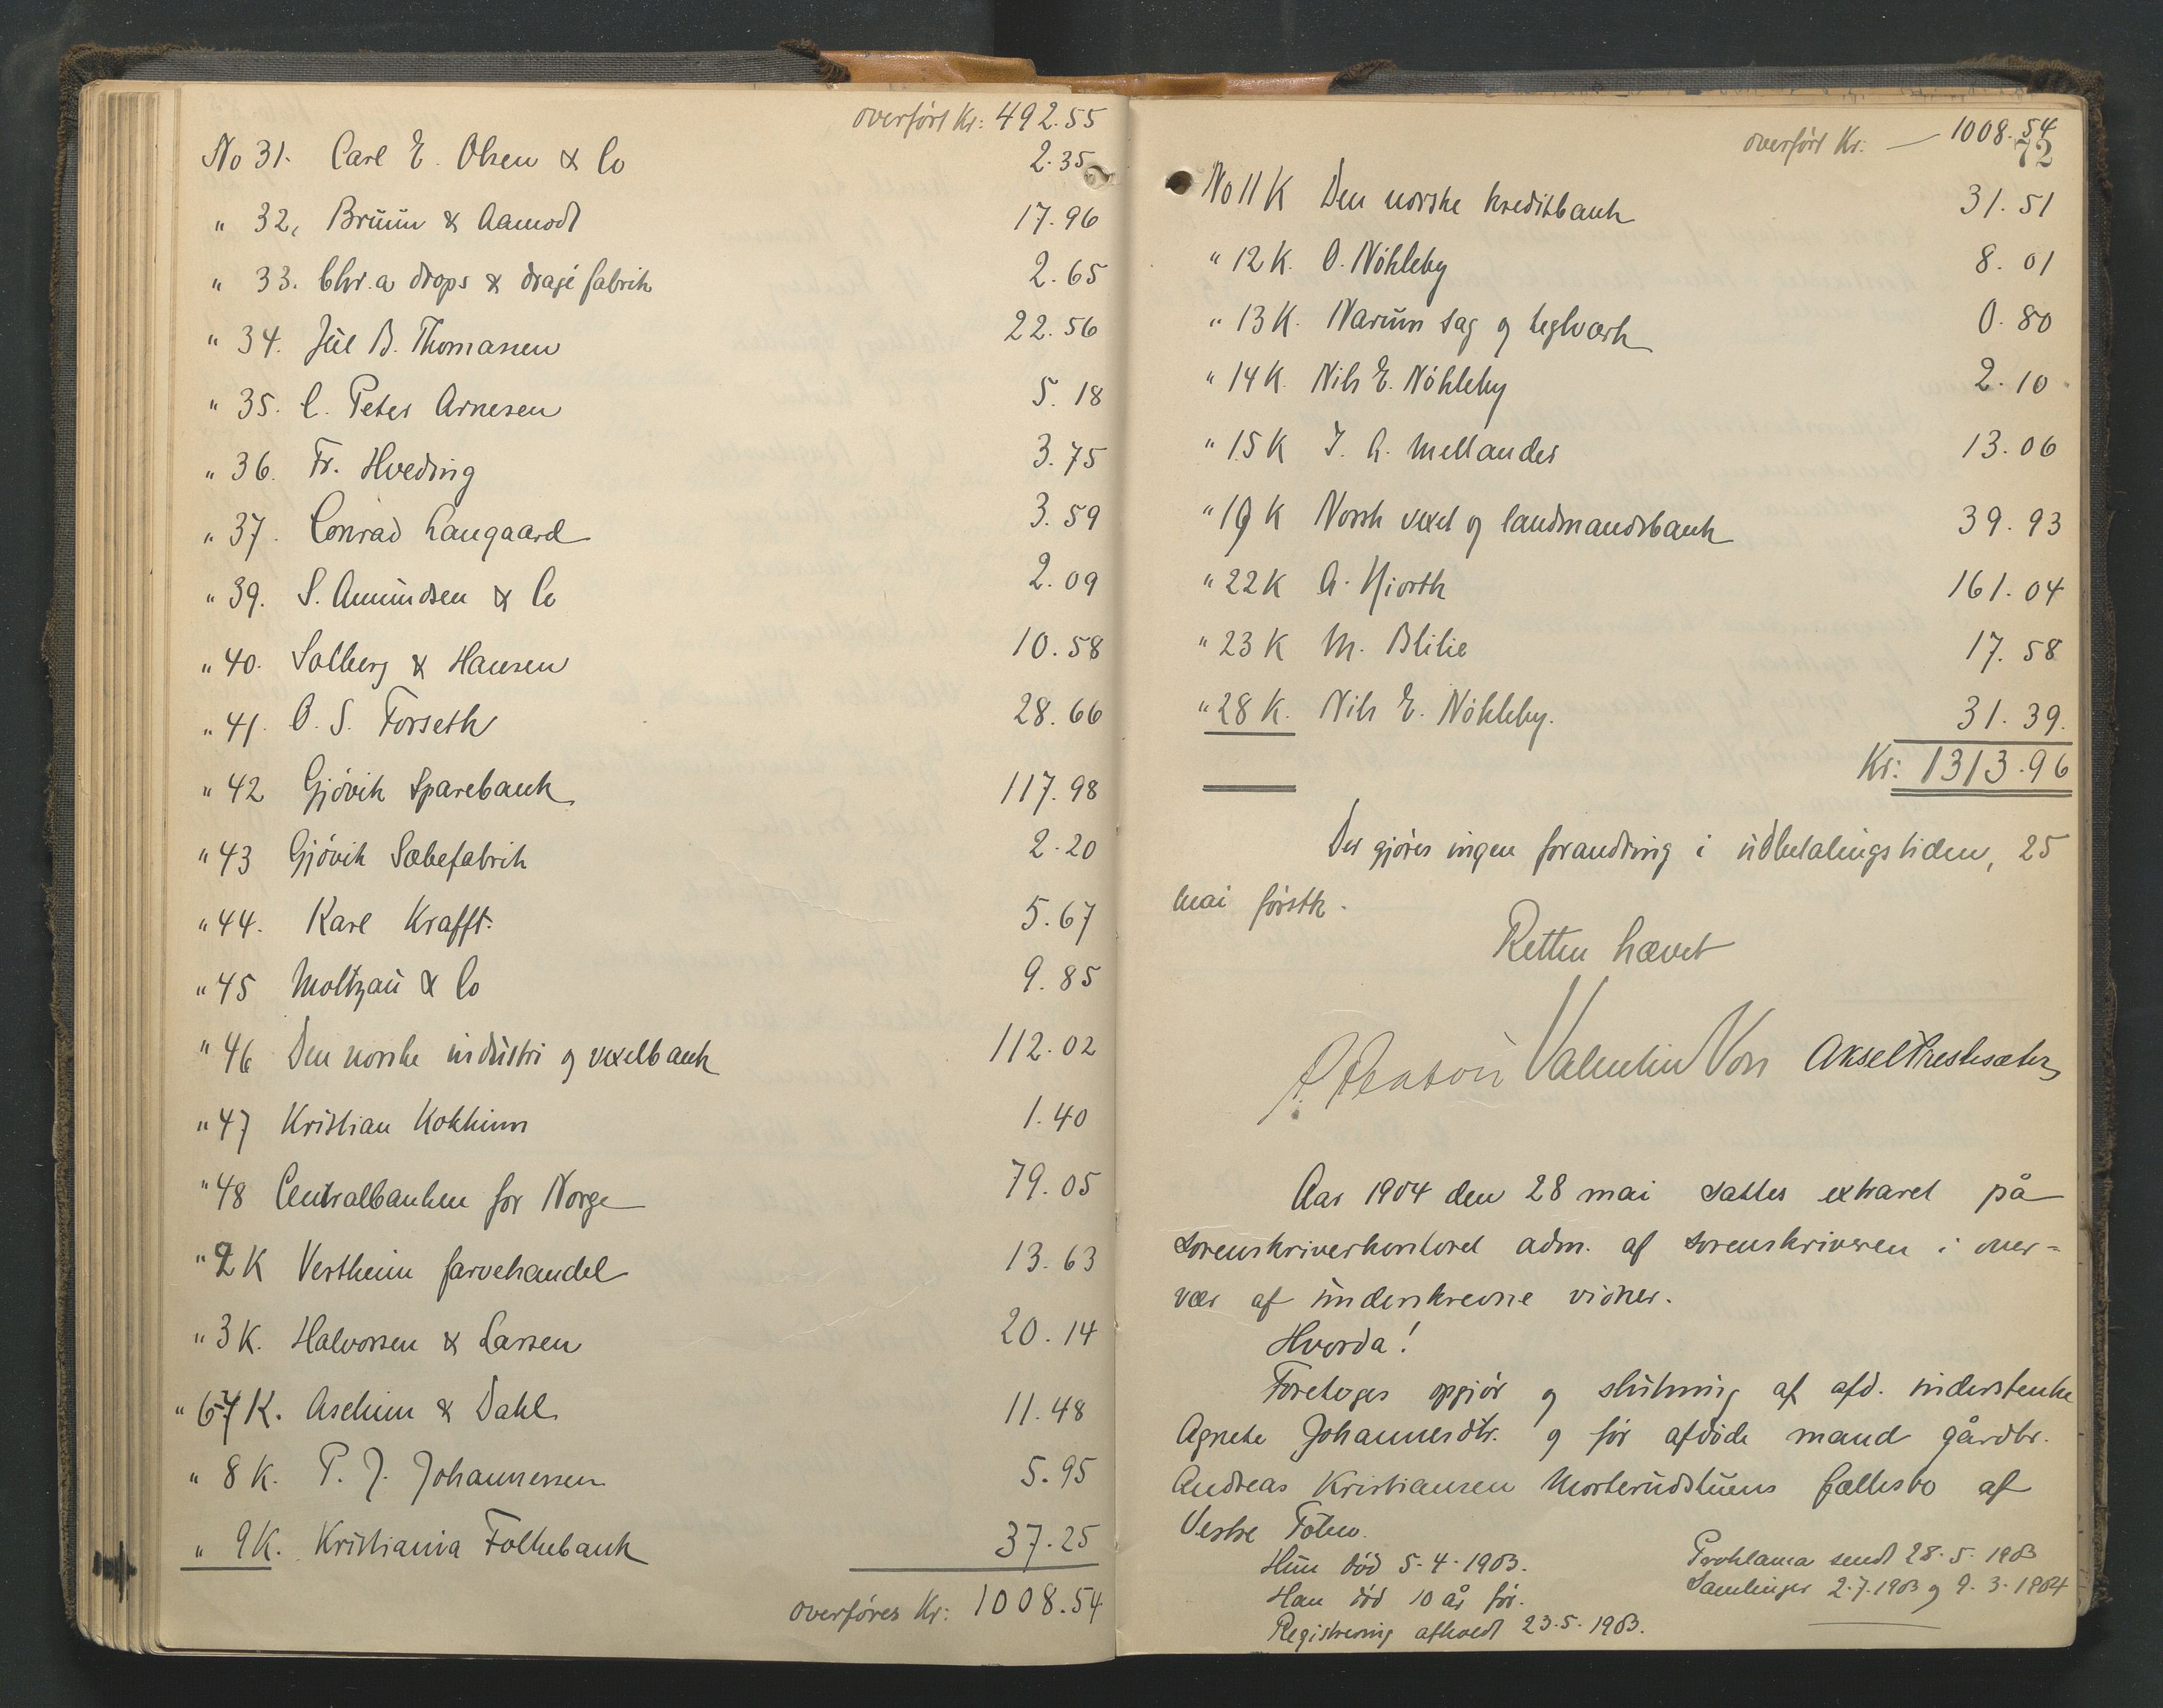 overført Kr: 492.55
No 31. Carl E. Olsen & Co 2.35
" 32, Bruun & Aamodt 17.96
" 33. Chr.a drops & dragé fabrik 2.65
" 34. Jul B. Thomassen 22.56
" 35. C. Peter Arnesen 5.18
" 36. Fr. Hveding 3.75
" 37. Conrad Langaard 3.59
" 39. S. Amundsen & Co 2.09
" 40. Solberg & Hansen 10.58
" 41. O. S. Forseth 28.66
" 42 Gjövik Sparebank 117.98
" 43 Gjövik Sæbefabrik 2.20
" 44. Karl Krafft. 5.67
" 45 Moltzau & Co 9.85
" 46 Den norske industri og vexelbank 112.02
" 47 Kristian Kokkim 1.40
" 48 Centralbanken for Norge 79.05
" 2 K Vertheim farvehandel 13.63
" 3 K. Halvorsen & Larsen 20.14
" 67 K. Aschim & Dahl 11.48
" 8 K. P. J. Johannessen 5.95
" 9 K. Kristiania Folkebank 37.25
overføres Kr: 1008.54
overført Kr. — 1008.54
72
No 11 K Den norske kreditbank 31.51
" 12 K. O. Nöhleby 8.01
" 13 K. Narum sag og teglværk 0.80
" 14 K. Nils E. Nöhleby 2.10
" 15 K J. A. Mellander 13.06
" 19 K Norsk vexel og landmandsbank 39.93
" 22 K A. Hjorth 161.04
" 23 K M. Blilie 17.58
" 28 K. Nils E. Nöhleby. 31.39.
Kr: 1313.96
Der gjöres ingen forandring i udbetalingstiden, 25
mai førstk.
Retten hævet
Valentin Voss Aksel Prestesæter
Aar 1904 den 28 mai sattes extraret på
sorenskriverkontoret adm. af sorenskriveren i over=
vær af underskrevne vidner.
Hvorda!
Foretoges opgjör og slutning af afd. inderstenke
Agnete Johannesdtr. og før afdöde mand gårdbr.
Andreas Kristiansen Morterudstuens fællesbo af
Vestre Toten.
Hun död 5-4-1903.
Han död 10 år før.
Registrering afholdt 23.5.1903.
Proklama sendt 28.5.1903
Samlinger 2.7.1903 og 9.3.1904